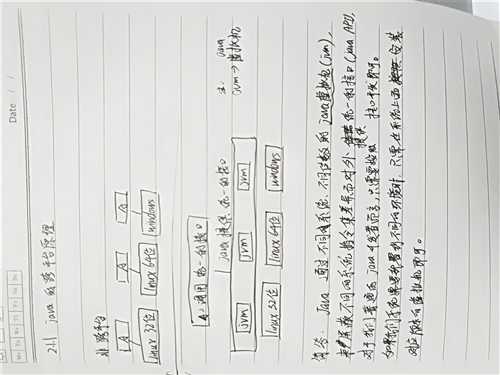 Date / /
2.1.1 java 的跨平台原理
非跨平台
A A A
linux 32位 linux 64位 windows
A:调用统一的接口
java提供统一的接口
jvm jvm jvm
linux 32位 linux 64位 windows
注: java
jvm → 虚拟机
简答: Java 通过不同的系统、不同位数的 java虚拟机(jvm),
来屏蔽不同的系统指令集差异而对外提供统一的接口(java API),
对于我们普通的 java 开发者而言,只需要 接口开发即可。
如果我们系统要部署到不同的环境时,只需在系统上面安装
对应版本的虚拟机即可。